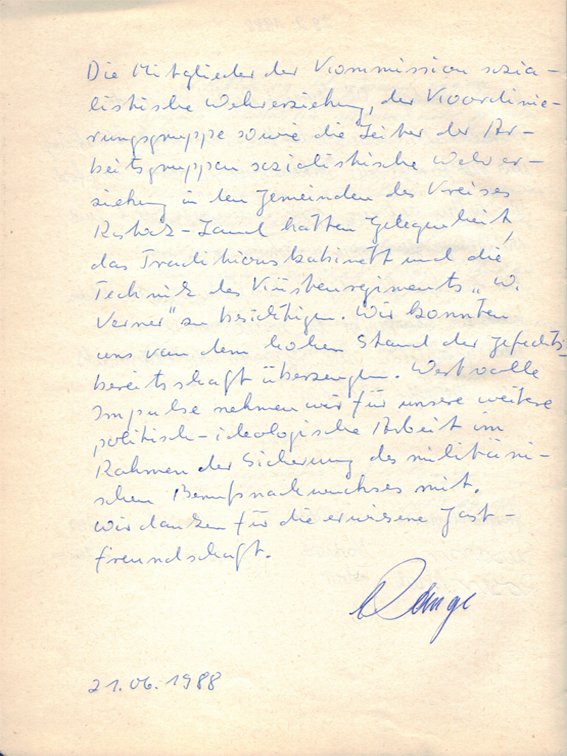 Die Mitglieder der Kommission sozia-
listische Wehrerziehung, der Koordinie-
rungsgruppe sowie die Leiter der Ar-
beitsgruppen sozialistische Wehrer-
ziehung in den Gemeinden des Kreises
Rostock-Land hatten Gelegenheit,
das Traditionskabinett und die
Technik des Küstenregiments „W.
Verner" zu besichtigen. Wir konnten
uns von dem hohen Stand der Gefechts-
bereitschaft überzeugen. Wertvolle
Impulse nehmen wir für unsere weitere
politisch-ideologische Arbeit im
Rahmen der Sicherung des militäri-
schen Berufsnachwuchses mit.
Wir danken für die erwiesene Gast-
freundschaft.
21.06.1988